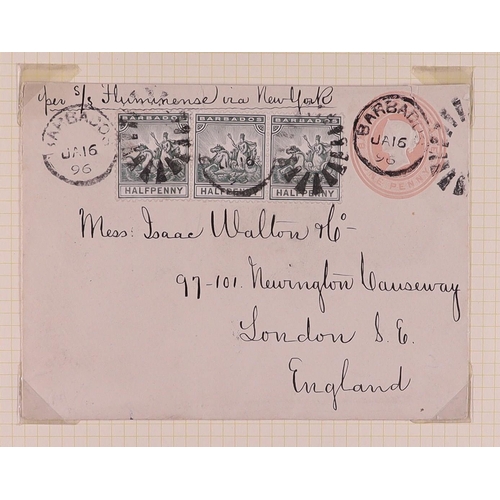 per S/S Fluminense via New York
BARBADOS
JA 16
96
BARBADOS
HALFPENNY
BARBADOS
HALFPENNY
BARBADOS
HALFPENNY
BARBADOS
JA 16
96
PENNY
Mess: Isaac Walton & Co-
97-101. Newington Causeway
London S.E.
England